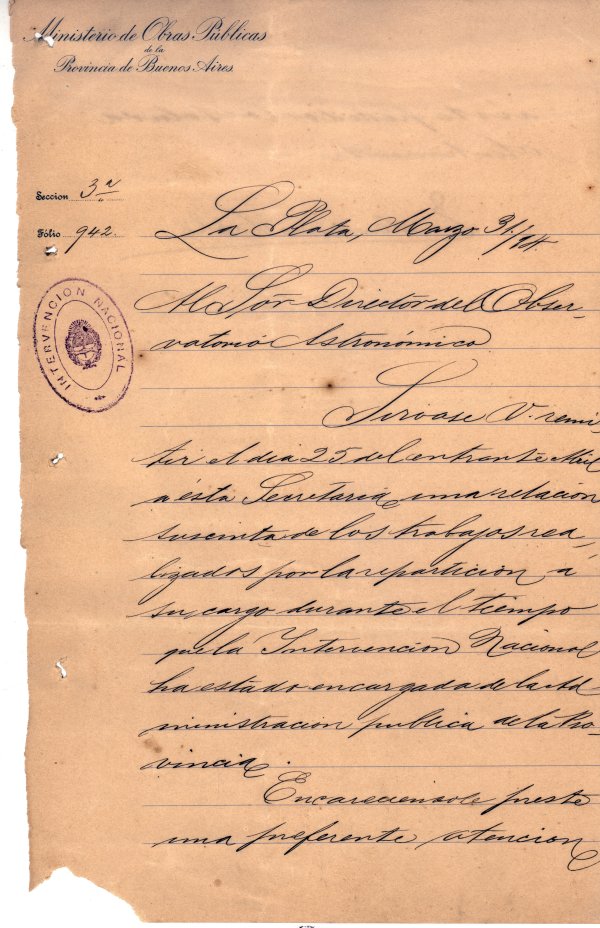 Ministerio de Obras Públicas
de la
Provincia de Buenos Aires
Seccion 3a
Fólio 942.
La Plata, Marzo 31/
INTERVENCION NACIONAL
Al Sor. Director del Obser-
vatorio Astronómico.
Sirvase V. remi,
tir el dia 25 del entrante Abril
a ésta Secretaria una relacion
suscinta de los trabajos rea,
lizados por la reparticion á
su cargo durante el tiempo
que la Intervencion Nacional
ha estado encargada de la Ad
ministracion publica de la Pro-
vincia.
preste
una preferente atencion